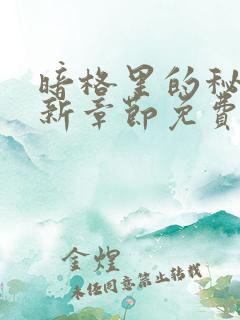 暗格里的秘
新章节免费
金煌
未经同意禁止转载